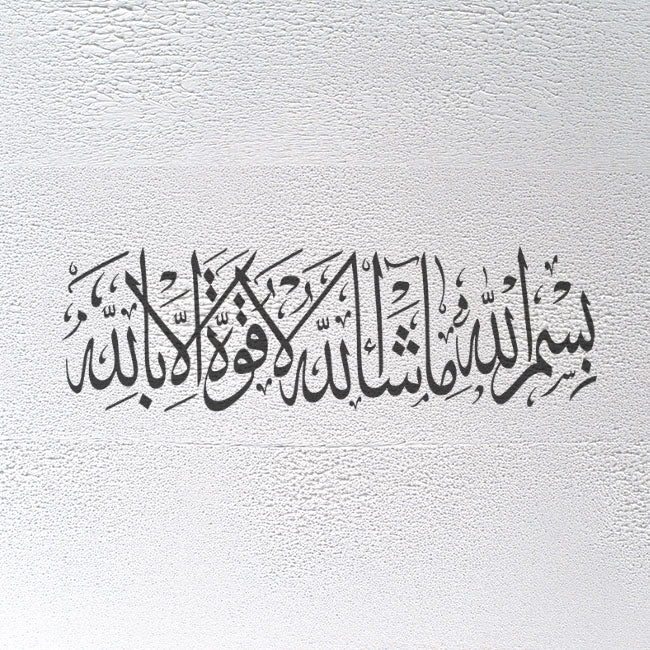 بسم الله ما شاء الله لا قوة إلا بالله